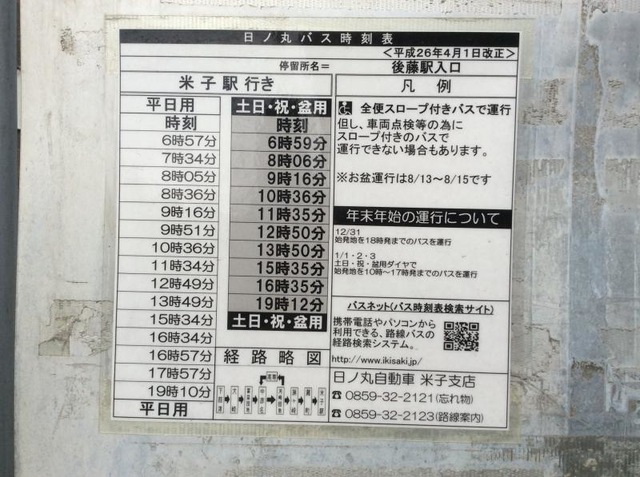 日ノ丸バス時刻表
<平成26年4月1日改正>
停留所名＝ 後藤駅入口
米子駅行き
平日用
時刻
6時57分
7時34分
8時05分
8時36分
9時16分
9時51分
10時36分
11時34分
12時49分
13時49分
15時34分
16時34分
16時57分
17時57分
19時10分
平日用
土日・祝・盆用
時刻
6時59分
8時06分
9時16分
10時36分
11時35分
12時50分
13時50分
15時35分
16時35分
19時12分
土日・祝・盆用
経路略図
凡例
全便スロープ付きバスで運行
但し、車両点検等の為に
スロープ付きのバスで
運行できない場合もあります。
※お盆運行は8/13～8/15です
年末年始の運行について
12/31
始発地を18時発までのバスを運行
1/1・2・3
土日・祝・盆用ダイヤで
始発地を10時～17時発までのバスを運行
バスネット(バス時刻表検索サイト)
携帯電話やパソコンから
利用できる、路線バスの
経路検索システム。
http://www.ikisaki.jp/
日ノ丸自動車 米子支店
☎0859-32-2121(忘れ物)
☎0859-32-2123(路線案内)